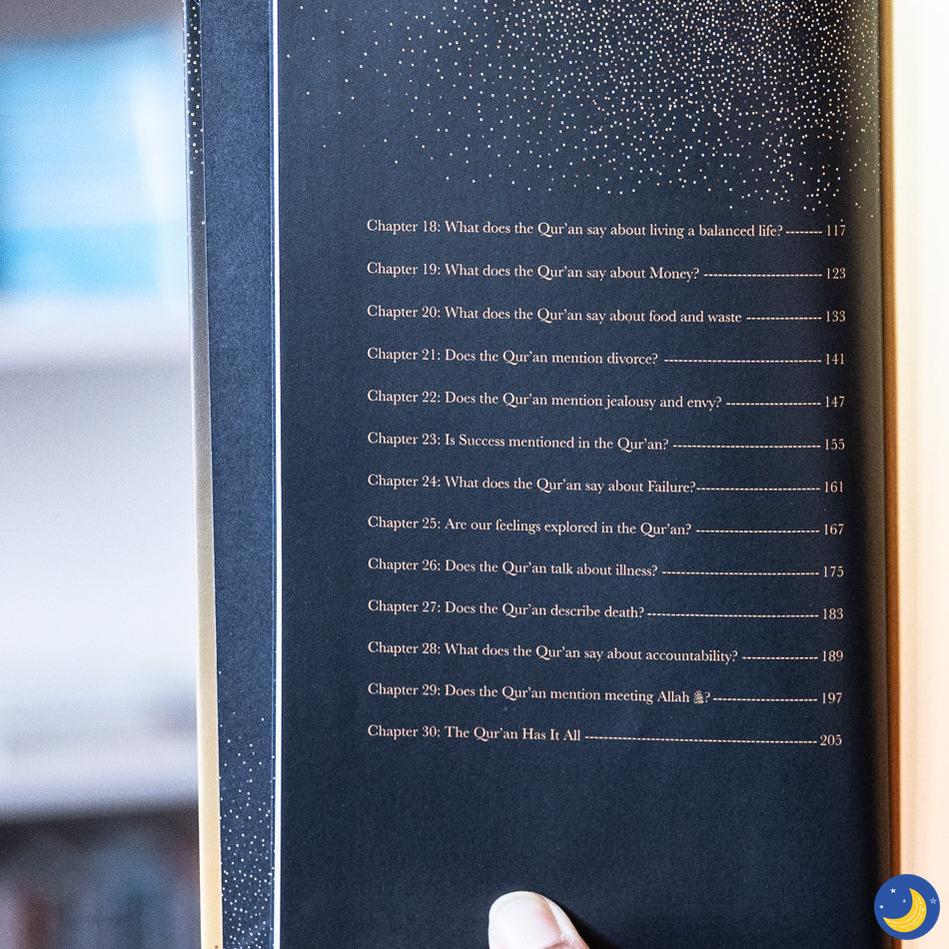 Chapter 18: What does the Qur'an say about living a balanced life? -------- 117
Chapter 19: What does the Qur'an say about Money? -------------------------- 123
Chapter 20: What does the Qur'an say about food and waste ---------------- 133
Chapter 21: Does the Qur'an mention divorce? ---------------------------------- 141
Chapter 22: Does the Qur'an mention jealousy and envy? --------------------- 147
Chapter 23: Is Success mentioned in the Qur'an? -------------------------------- 155
Chapter 24: What does the Qur'an say about Failure?--------------------------- 161
Chapter 25: Are our feelings explored in the Qur'an? --------------------------- 167
Chapter 26: Does the Qur'an talk about illness? ---------------------------------- 175
Chapter 27: Does the Qur'an describe death? ------------------------------------- 183
Chapter 28: What does the Qur'an say about accountability? ----------------- 189
Chapter 29: Does the Qur'an mention meeting Allah ?----------------------- 197
Chapter 30: The Qur'an Has It All --------------------------------------------------- 205